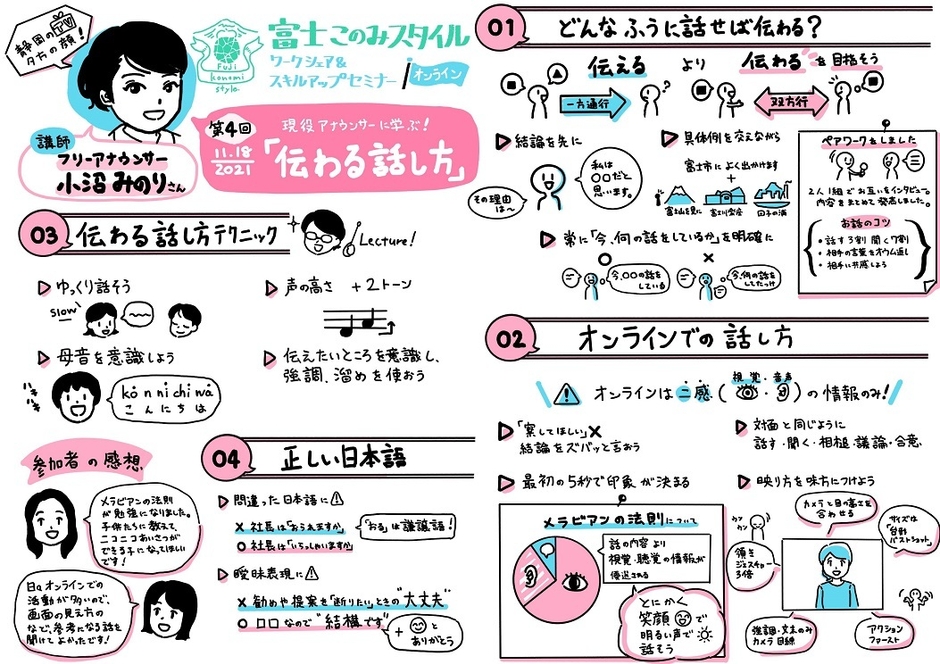 静岡の
夕方の顔!
講師
フリーアナウンサー
小沼 みのりさん
Fuji
konomi
style
富士このみスタイル
ワークシェア&
スキルアップセミナー
オンライン
第4回
11.18
2021
現役アナウンサーに学ぶ!
「伝わる話し方」
01 どんなふうに話せば伝わる?
伝える より 伝わる を目指そう
一方通行
双方行
結論を先に
私は
〇〇だと
思います。
その理由
は〜
具体例を交えながら
富士市によく出かけます
+
富士山を見に
富士川楽座
田子の浦
常に「今、何の話をしているか」を明確に
今、〇〇の話を
している
今、何の話を
してたっけ
ペアワークをしました
2人1組でお互いをインタビュー。
内容をまとめて発表しました。
お話のコツ
・話す3割 聞く7割
・相手の言葉をオウム返し
・相手に共感しよう
02 オンラインでの話し方
オンラインは二感(視覚・音声)の情報のみ!
「察してほしい」×
結論をズバッと言おう
対面と同じように
話す・聞く・相槌・議論・合意
最初の5秒で印象が決まる
メラビアンの法則について
話の内容より
視覚・聴覚の情報が
優遇される
とにかく
笑顔で
明るい声で
話そう
映り方を味方につけよう
カメラと目の高さを
合わせる
サイズは
「台形
バストショット」
頷き
ジェスチャー
3倍
強調・文末のみ
カメラ目線
アクション
ファースト
03 伝わる話し方テクニック
Lecture!
ゆっくり話そう
slow
声の高さ +2トーン
母音を意識しよう
ko n ni chi wa
こ ん に ち は
伝えたいところを意識し、
強調、溜めを使おう
参加者の感想
メラビアンの法則
が勉強になりました。
子供たちに教えて、
ニコニコあいさつが
できる子になってほしい
です!
日々オンラインでの
活動が多いので、
画面の見え方の
など、参考になる話を
聞けてよかったです!
04 正しい日本語
間違った日本語に
× 社長は「おられますか」
「おる」は謙譲語!
〇 社長は「いらっしゃいますか」
曖昧表現に
× 勧めや提案を「断りたい」ときの"大丈夫"
〇 □□なので"結構です"
+ と
ありがとう